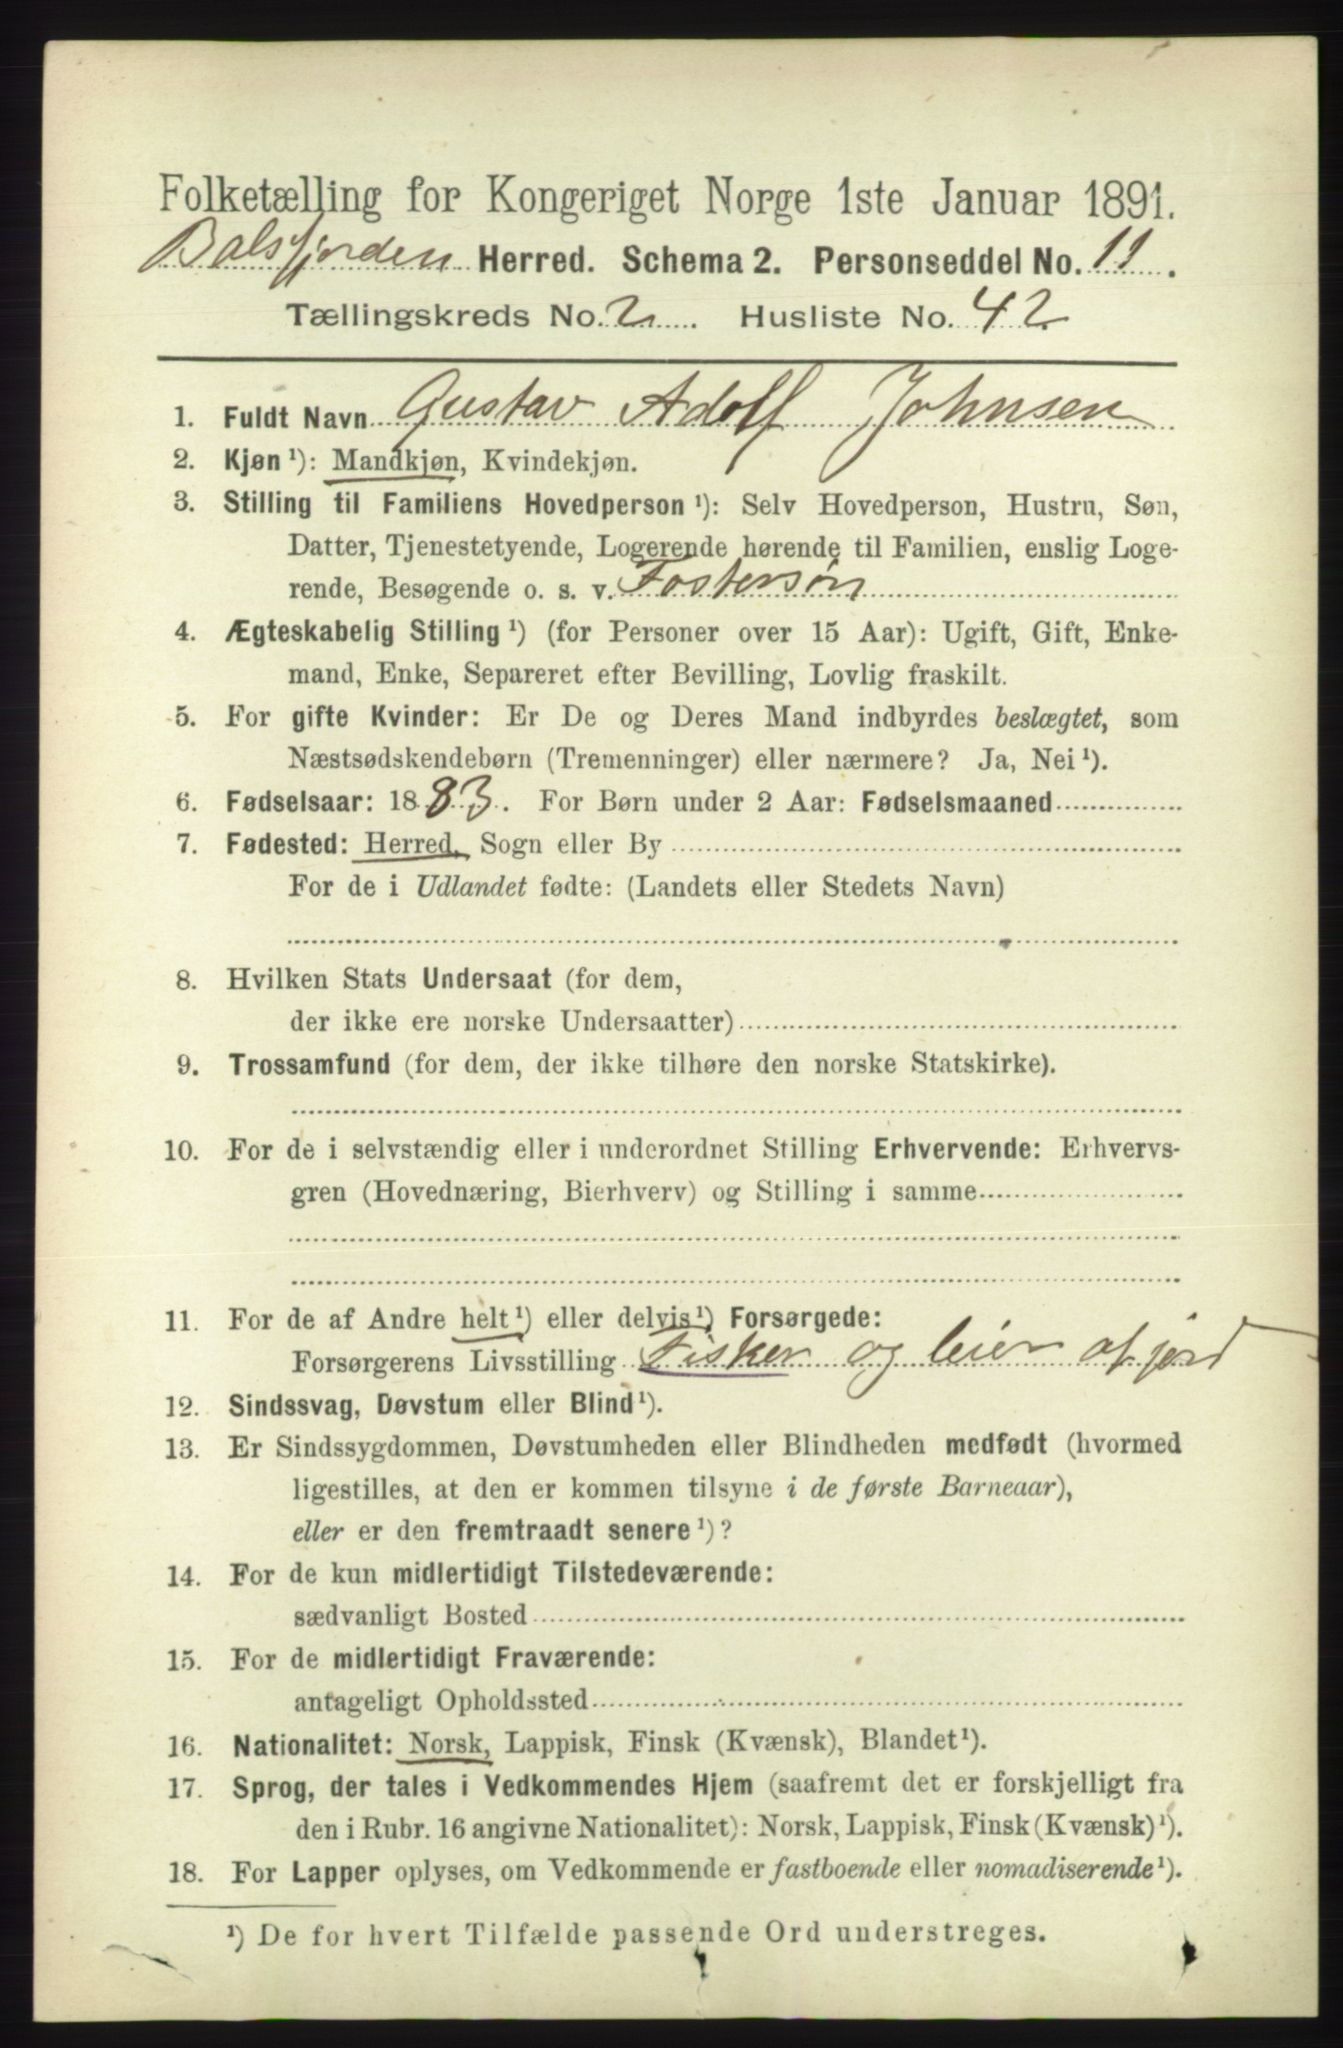 Folketælling for Kongeriget Norge 1ste Januar 1891.
Balsfjorden Herred. Schema 2. Personseddel No. 11.
Tællingskreds No. 2. Husliste No. 42
1. Fuldt Navn Gustav Adolf Johnsen
2. Kjøn¹): Mandkjøn, Kvindekjøn.
3. Stilling til Familiens Hovedperson¹): Selv Hovedperson, Hustru, Søn,
Datter, Tjenestetyende, Logerende hørende til Familien, enslig Loge-
rende, Besøgende o. s. v. Fostersøn
4. Ægteskabelig Stilling¹) (for Personer over 15 Aar): Ugift, Gift, Enke-
mand, Enke, Separeret efter Bevilling, Lovlig fraskilt.
5. For gifte Kvinder: Er De og Deres Mand indbyrdes beslægtet, som
Næstsødskendebørn (Tremenninger) eller nærmere? Ja, Nei¹).
6. Fødselsaar: 1883. For Børn under 2 Aar: Fødselsmaaned
7. Fødested: Herred, Sogn eller By
For de i Udlandet fødte: (Landets eller Stedets Navn)
8. Hvilken Stats Undersaat (for dem,
der ikke ere norske Undersaatter)
9. Trossamfund (for dem, der ikke tilhøre den norske Statskirke).
10. For de i selvstændig eller i underordnet Stilling Erhvervende: Erhvervs-
gren (Hovednæring, Bierhverv) og Stilling i samme
11. For de af Andre helt¹) eller delvis¹) Forsørgede:
Forsørgerens Livsstilling Fisker og leier af jord
12. Sindssvag, Døvstum eller Blind¹).
13. Er Sindssygdommen, Døvstumheden eller Blindheden medfødt (hvormed
ligestilles, at den er kommen tilsyne i de første Barneaar),
eller er den fremtraadt senere¹)?
14. For de kun midlertidigt Tilstedeværende:
sædvanligt Bosted
15. For de midlertidigt Fraværende:
antageligt Opholdssted
16. Nationalitet: Norsk, Lappisk, Finsk (Kvænsk), Blandet¹).
17. Sprog, der tales i Vedkommendes Hjem (saafremt det er forskjelligt fra
den i Rubr. 16 angivne Nationalitet): Norsk, Lappisk, Finsk (Kvænsk)¹).
18. For Lapper oplyses, om Vedkommende er fastboende eller nomadiserende¹).
¹) De for hvert Tilfælde passende Ord understreges.